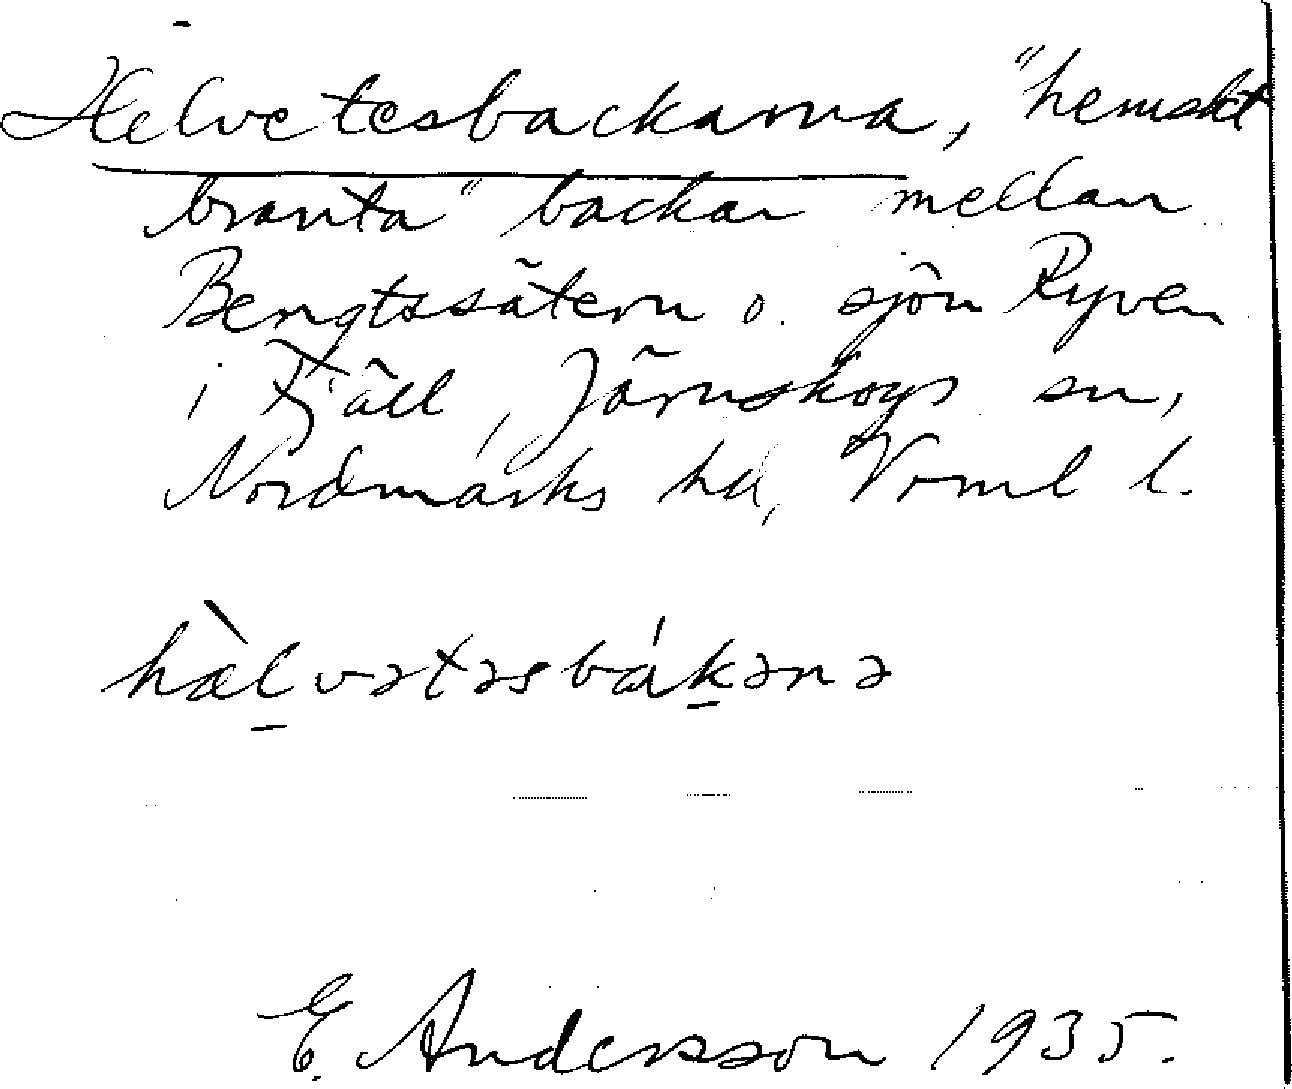 Helvetesbackarna, "hemskt
branta" backar mellan
Bengtssätern o. sjön Ryven
i Fjäll, Järnskogs sn,
Nordmarks hd, Vrml l.
hæ̀l̠vətəsbák̠ənə
E. Andersson 1935.